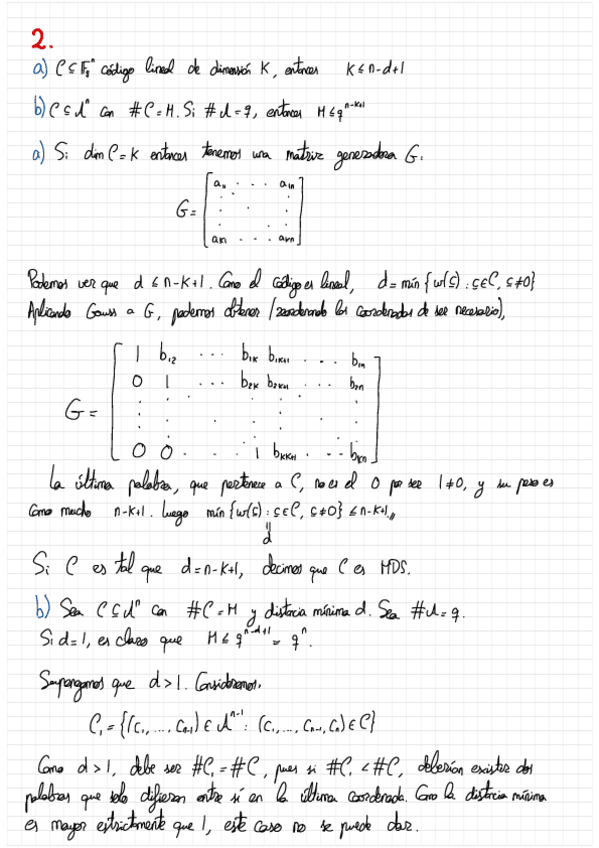 2.
a) C ⊆ F_q^n código lineal de dimensión K, entonces K ≤ n-d+1
b) C ⊆ A^n con #C = M. Si #A = q, entonces M ≤ q^{n-K+1}
a) Si dim C = K entonces tenemos una matriz generadora G:
G = [ a_{11} · · · a_{1n}
a_{K1} · · · a_{Kn} ]
Podemos ver que d ≤ n-K+1. Como el código es lineal, d = mín {w(c) : c ∈ C, c ≠ 0}
Aplicando Gauss a G, podemos obtener (reordenando las coordenadas de ser necesario),
G = [ 1 b_{12} · · · b_{1K} b_{1K+1} · · · b_{1n}
0 1 · · · b_{2K} b_{2K+1} · · · b_{2n}
0 0 · · · 1 b_{KK+1} · · · b_{Kn} ]
La última palabra, que pertenece a C, no es el 0 por ser 1 ≠ 0, y su peso es
como mucho n-K+1. Luego mín {w(c) : c ∈ C, c ≠ 0} ≤ n-K+1,,
=
d
Si C es tal que d = n-K+1, decimos que C es MDS.
b) Sea C ⊆ A^n con #C = M y distancia mínima d. Sea #A = q.
Si d = 1, es claro que M ≤ q^{n-d+1} = q^n.
Supongamos que d > 1. Consideramos,
C_1 = {(c_1, ..., c_{n-1}) ∈ A^{n-1} : (c_1, ..., c_{n-1}, c_n) ∈ C}
Como d > 1, debe ser #C_1 = #C, pues si #C_1 < #C, deberían existir dos
palabras que solo difieran entre sí en la última coordenada. Como la distancia mínima
es mayor estrictamente que 1, este caso no se puede dar.